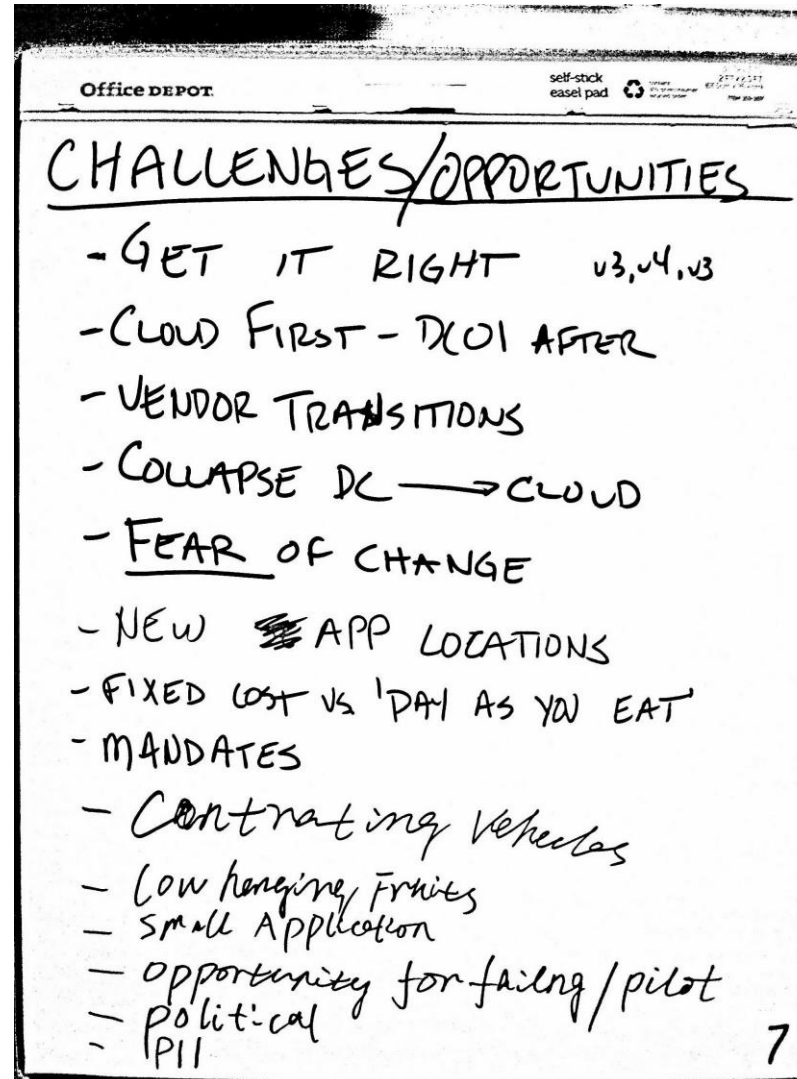 Office DEPOT.
self-stick
easel pad
CHALLENGES/OPPORTUNITIES
- GET IT RIGHT v3, v4, v3
- CLOUD FIRST - DC01 AFTER
- VENDOR TRANSITIONS
- COLLAPSE DC → CLOUD
- FEAR OF CHANGE
- NEW APP LOCATIONS
- FIXED COST VS 'PAY AS YOU EAT'
- MANDATES
- Contrating Vehecles
- Low henging Fruits
- Small Application
- Opportunity for failng / pilot
- political
- PII
7